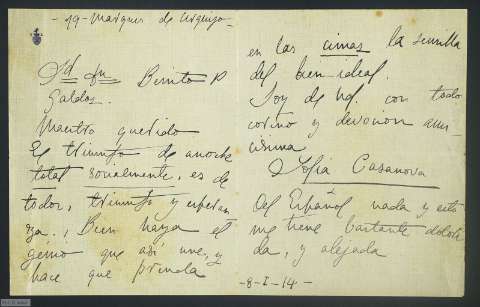 -19- Marques de Urquijo-
Sd Dn Benito P
Galdos.
Maestro querido
El triunfo de anoche
total sonalmente, es de
todos, triunfo y esperan
za. ¡Bien haya el
genio que así une, y
hace que prenda
en las cimas la semilla
del bien ideal.
Soy de Vd. con todo
cariño y devocion ami-
cisima
Sofia Casanova
Del Español nada y esto
me tiene bastante dolori
da, y alejada
-8-I-14-